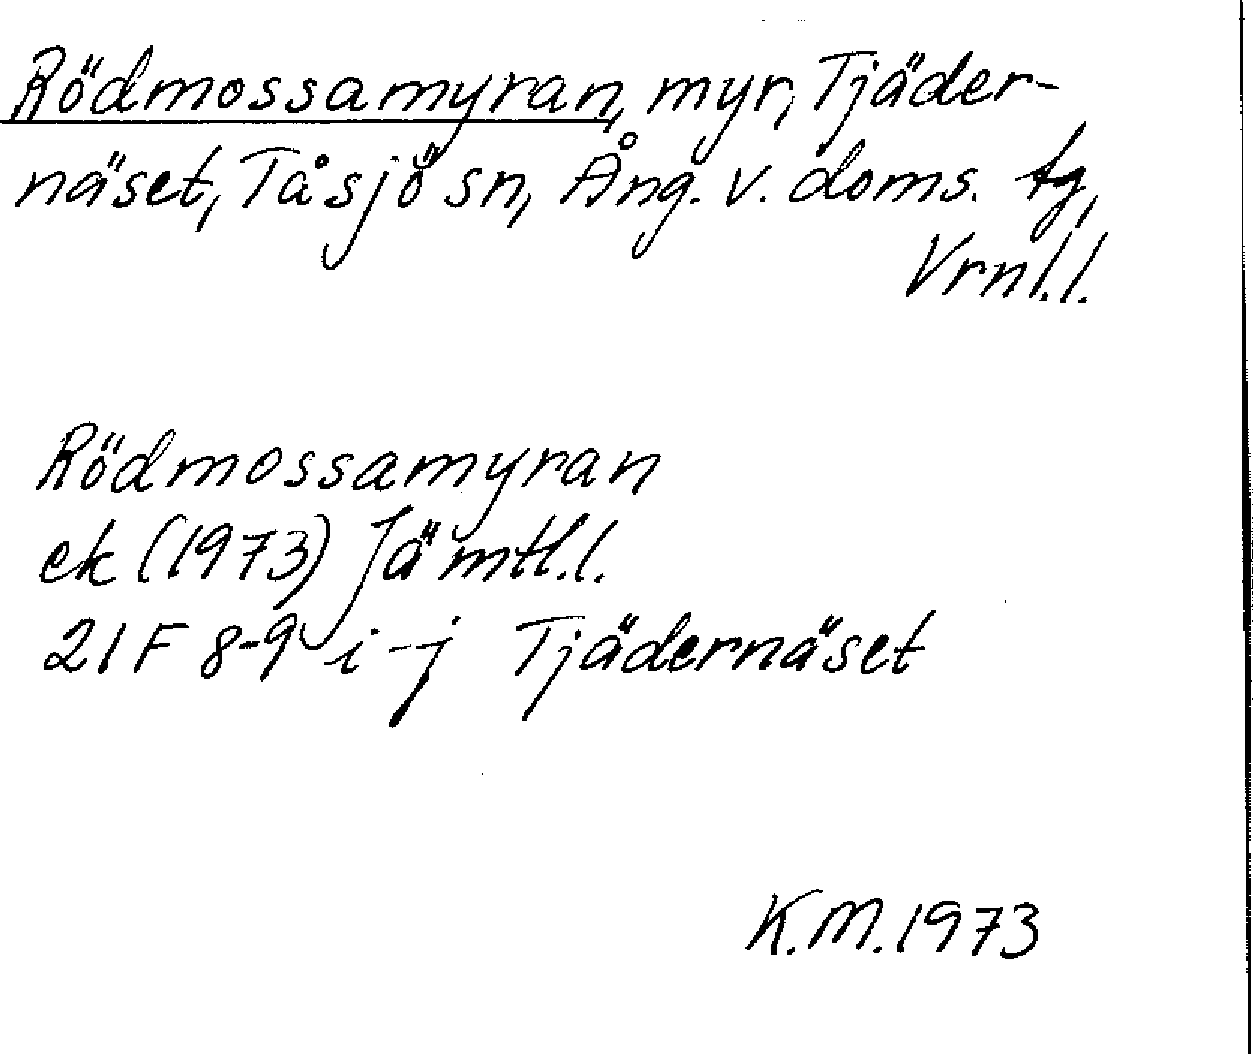 Rödmossamyran, myr, Tjäder-
näset, Tåsjö sn, Ång. v. doms. tg,
Vrnl.l.
Rödmossamyran
ek (1973) Jämtl.l.
21F 8-9 i-j Tjädernäset
K.M. 1973